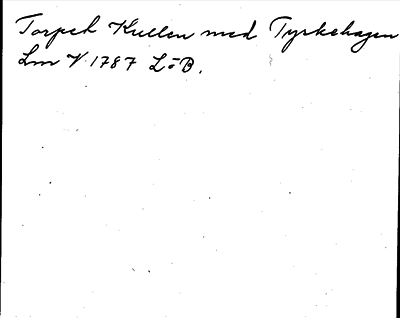 Torpeh Kullen med Tyrkehagen
Lm V 1787 L-B.